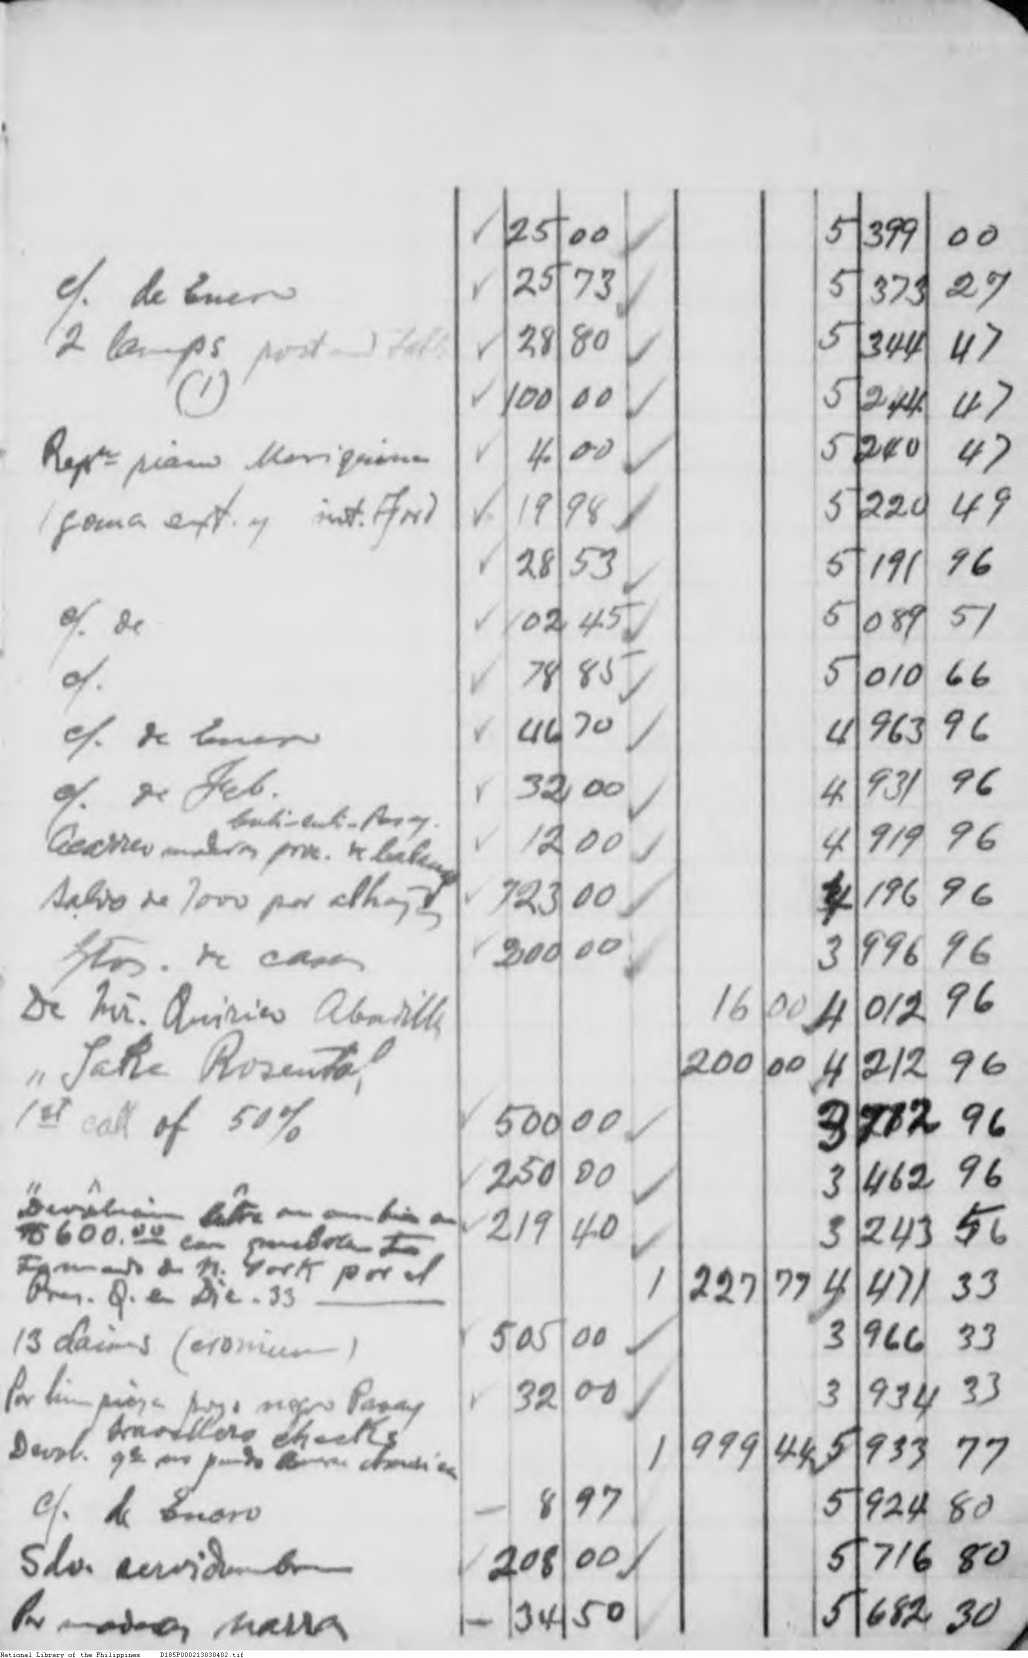 ✓ 25 00 ✓ 5 399 00
c/. de Enero ✓ 25 73 ✓ 5 373 27
2 lamps post and table ✓ 28 80 ✓ 5 344 47
(1) ✓ 100 00 ✓ 5 244 47
piano Mariquina ✓ 4 00 ✓ 5 240 47
1 goma ext. y int. Ford ✓ 19 98 ✓ 5 220 49
✓ 28 53 ✓ 5 191 96
c/. de ✓ 102 45 ✓ 5 089 51
c/. ✓ 78 85 ✓ 5 010 66
c/. de Enero ✓ 46 70 ✓ 4 963 96
c/. de Feb. ✓ 32 00 ✓ 4 931 96
Acarreo de ✓ 12 00 ✓ 4 919 96
Saldo de 7000 por alhajas ✓ 723 00 ✓ 4 196 96
Gtos. de casa ✓ 200 00 ✓ 3 996 96
De Mr. Quirico Abadilla 16 00 4 012 96
" Jake Rosental 200 00 4 212 96
1st call of 50% ✓ 500 00 ✓ 3 712 96
✓ 250 00 ✓ 3 462 96
✓ 219 40 ✓ 3 243 56
₱600.00 con
de N. York por el
Pres. Q. en Dic. 33 1 227 77 4 471 33
13 (cromium) ✓ 505 00 ✓ 3 966 33
Por limpieza pozo negro Pasay ✓ 32 00 ✓ 3 934 33
travellers checks
Devol. qe no pudo 1 999 44 5 933 77
c/. de Enero – 8 97 5 924 80
Sdo. servidumbre ✓ 208 00 ✓ 5 716 80
Por madera narra – 34 50 5 682 30
National Library of the Philippines D185P000213030402.tif